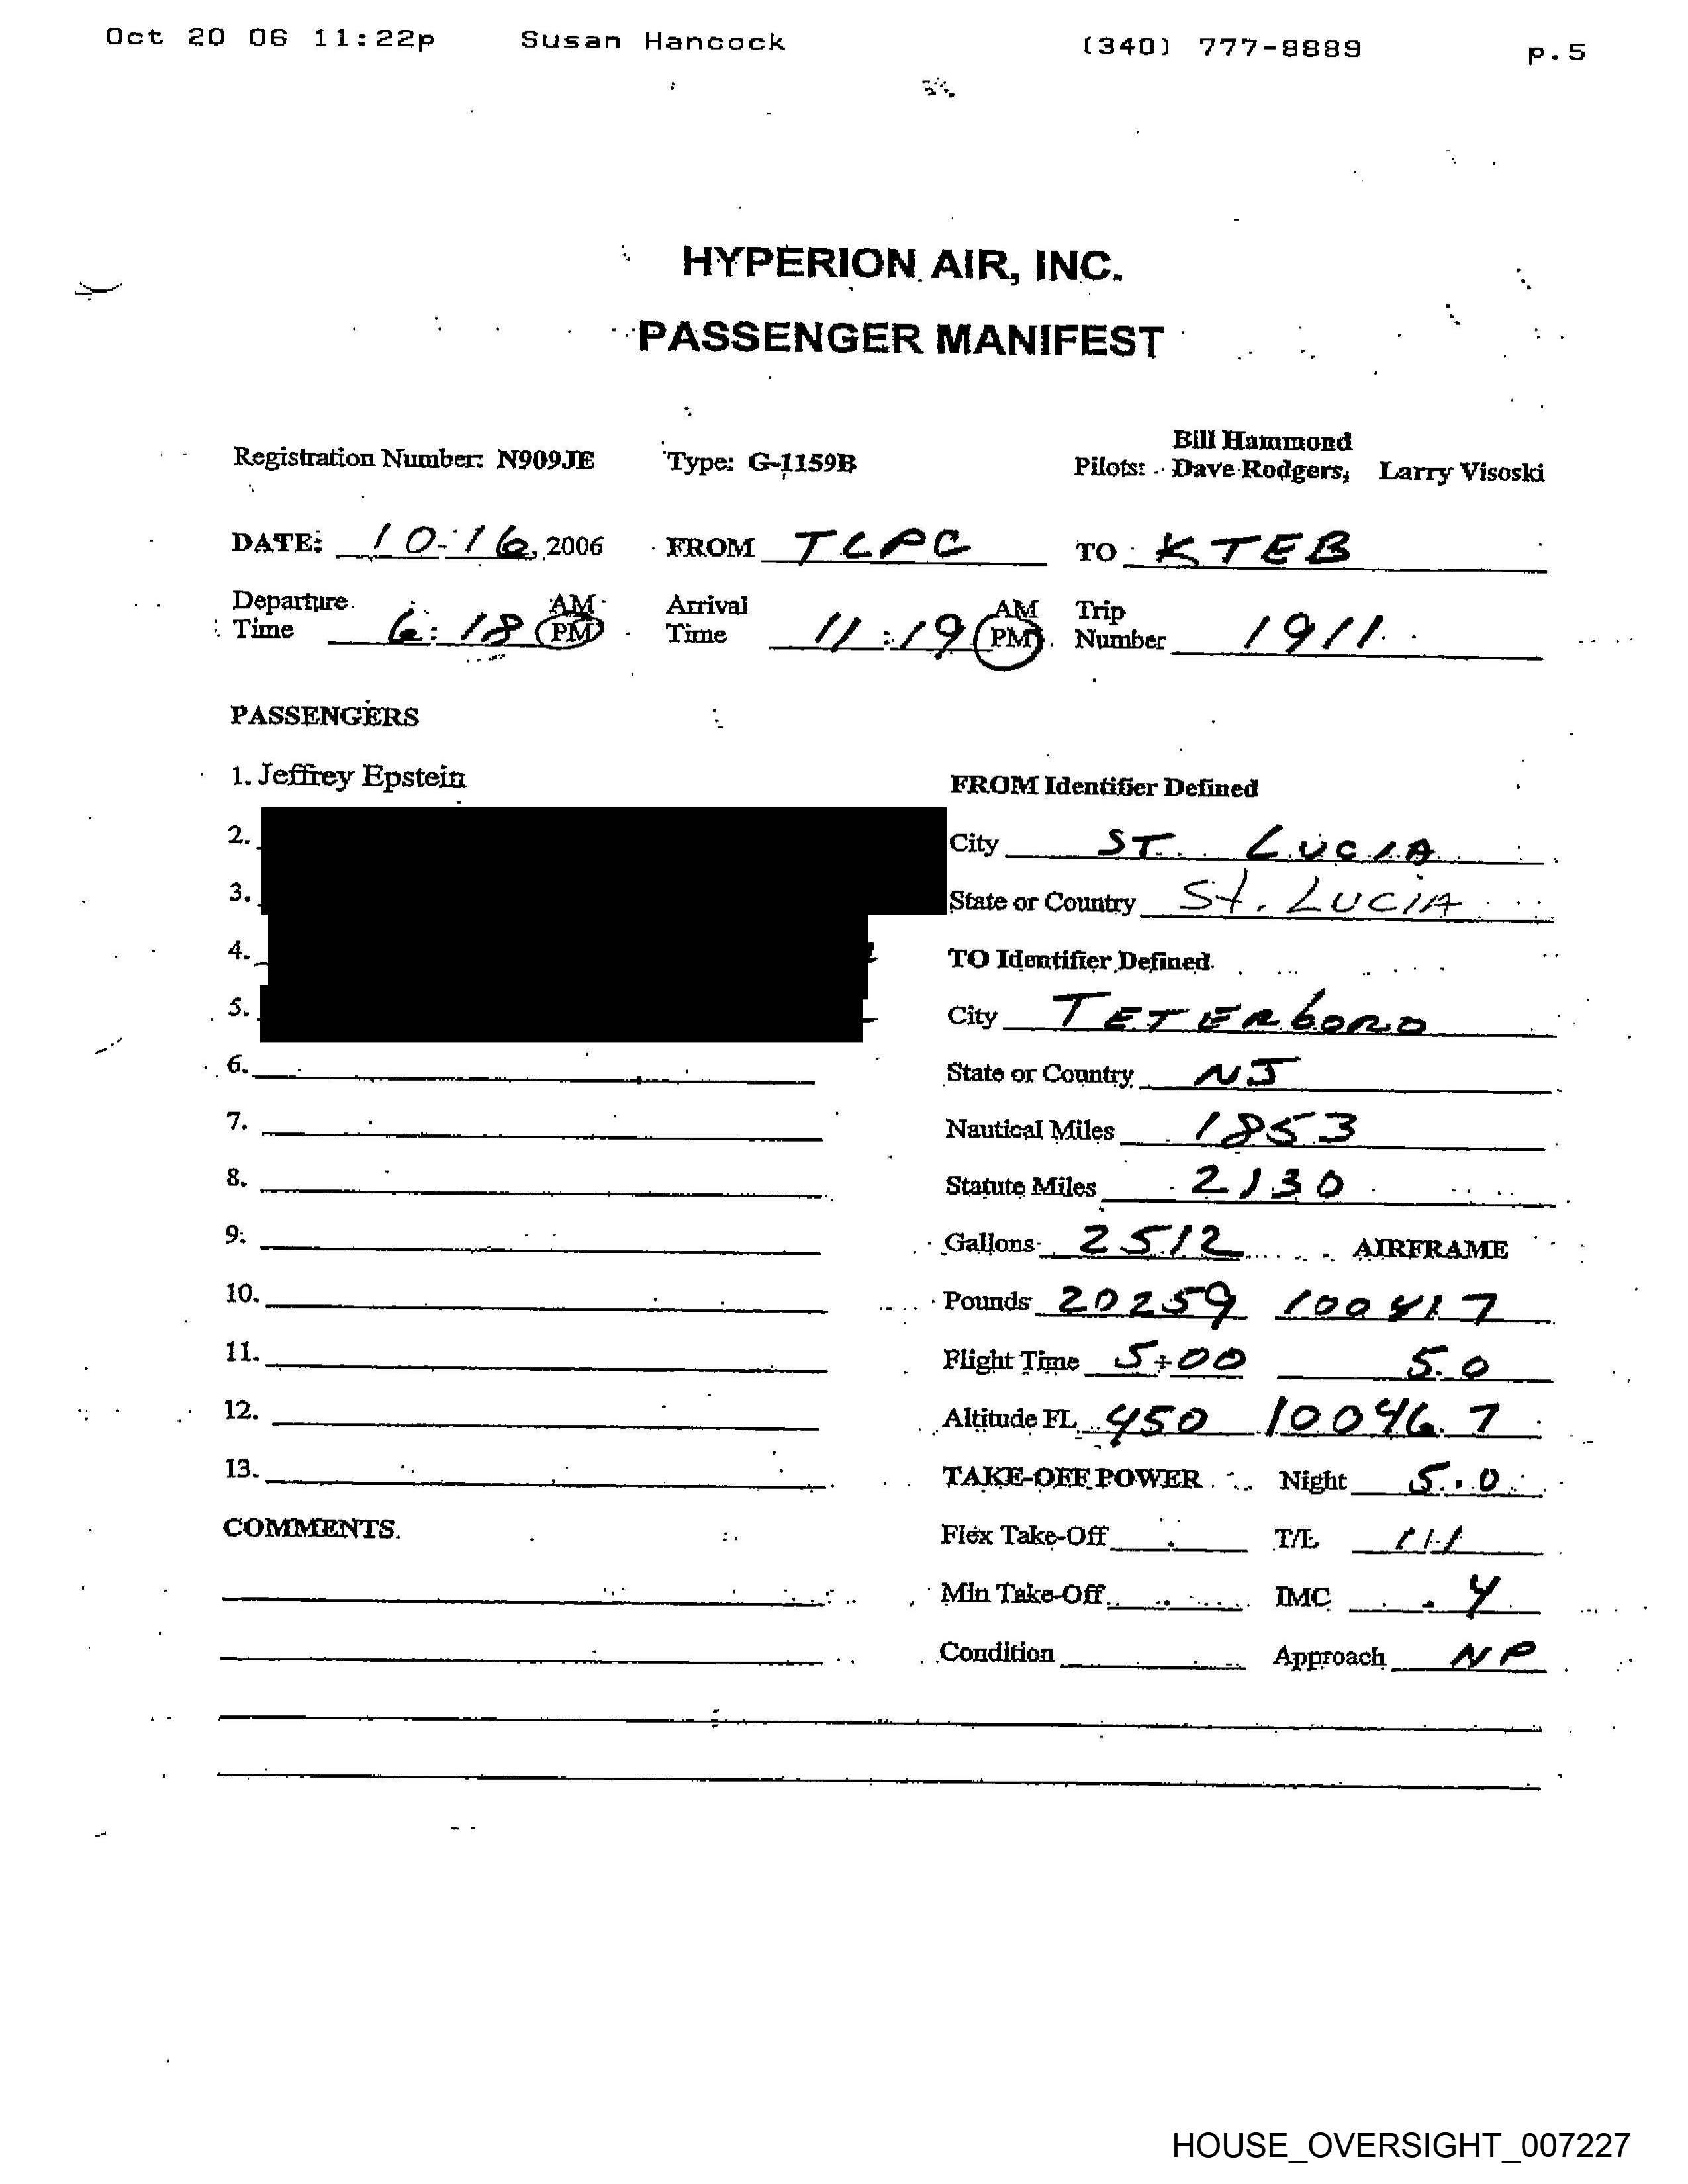 Oct 20 06 11:22p Susan Hancock (340) 777-8889 p.5
HYPERION AIR, INC.
PASSENGER MANIFEST
Bill Hammond
Registration Number: N909JE Type: G-1159B Pilots: Dave Rodgers, Larry Visoski
DATE: 10-16, 2006 FROM TLPC TO KTEB
Departure Time 6:18 AM PM Arrival Time 11:19 AM PM Trip Number 1911
PASSENGERS
1. Jeffrey Epstein
FROM Identifier Defined
2. City ST. LUCIA
3. State or Country St. LUCIA
4. TO Identifier Defined
5. City TETERboro
6. State or Country NJ
7. Nautical Miles 1853
8. Statute Miles 2130
9. Gallons 2512 AIRFRAME
10. Pounds 20259 10041.7
11. Flight Time 5+00 5.0
12. Altitude FL 450 10046.7
13. TAKE-OFF POWER Night 5.0
COMMENTS. Flex Take-Off T/L 1/1
Min Take-Off IMC .4
Condition Approach NP
HOUSE_OVERSIGHT_007227